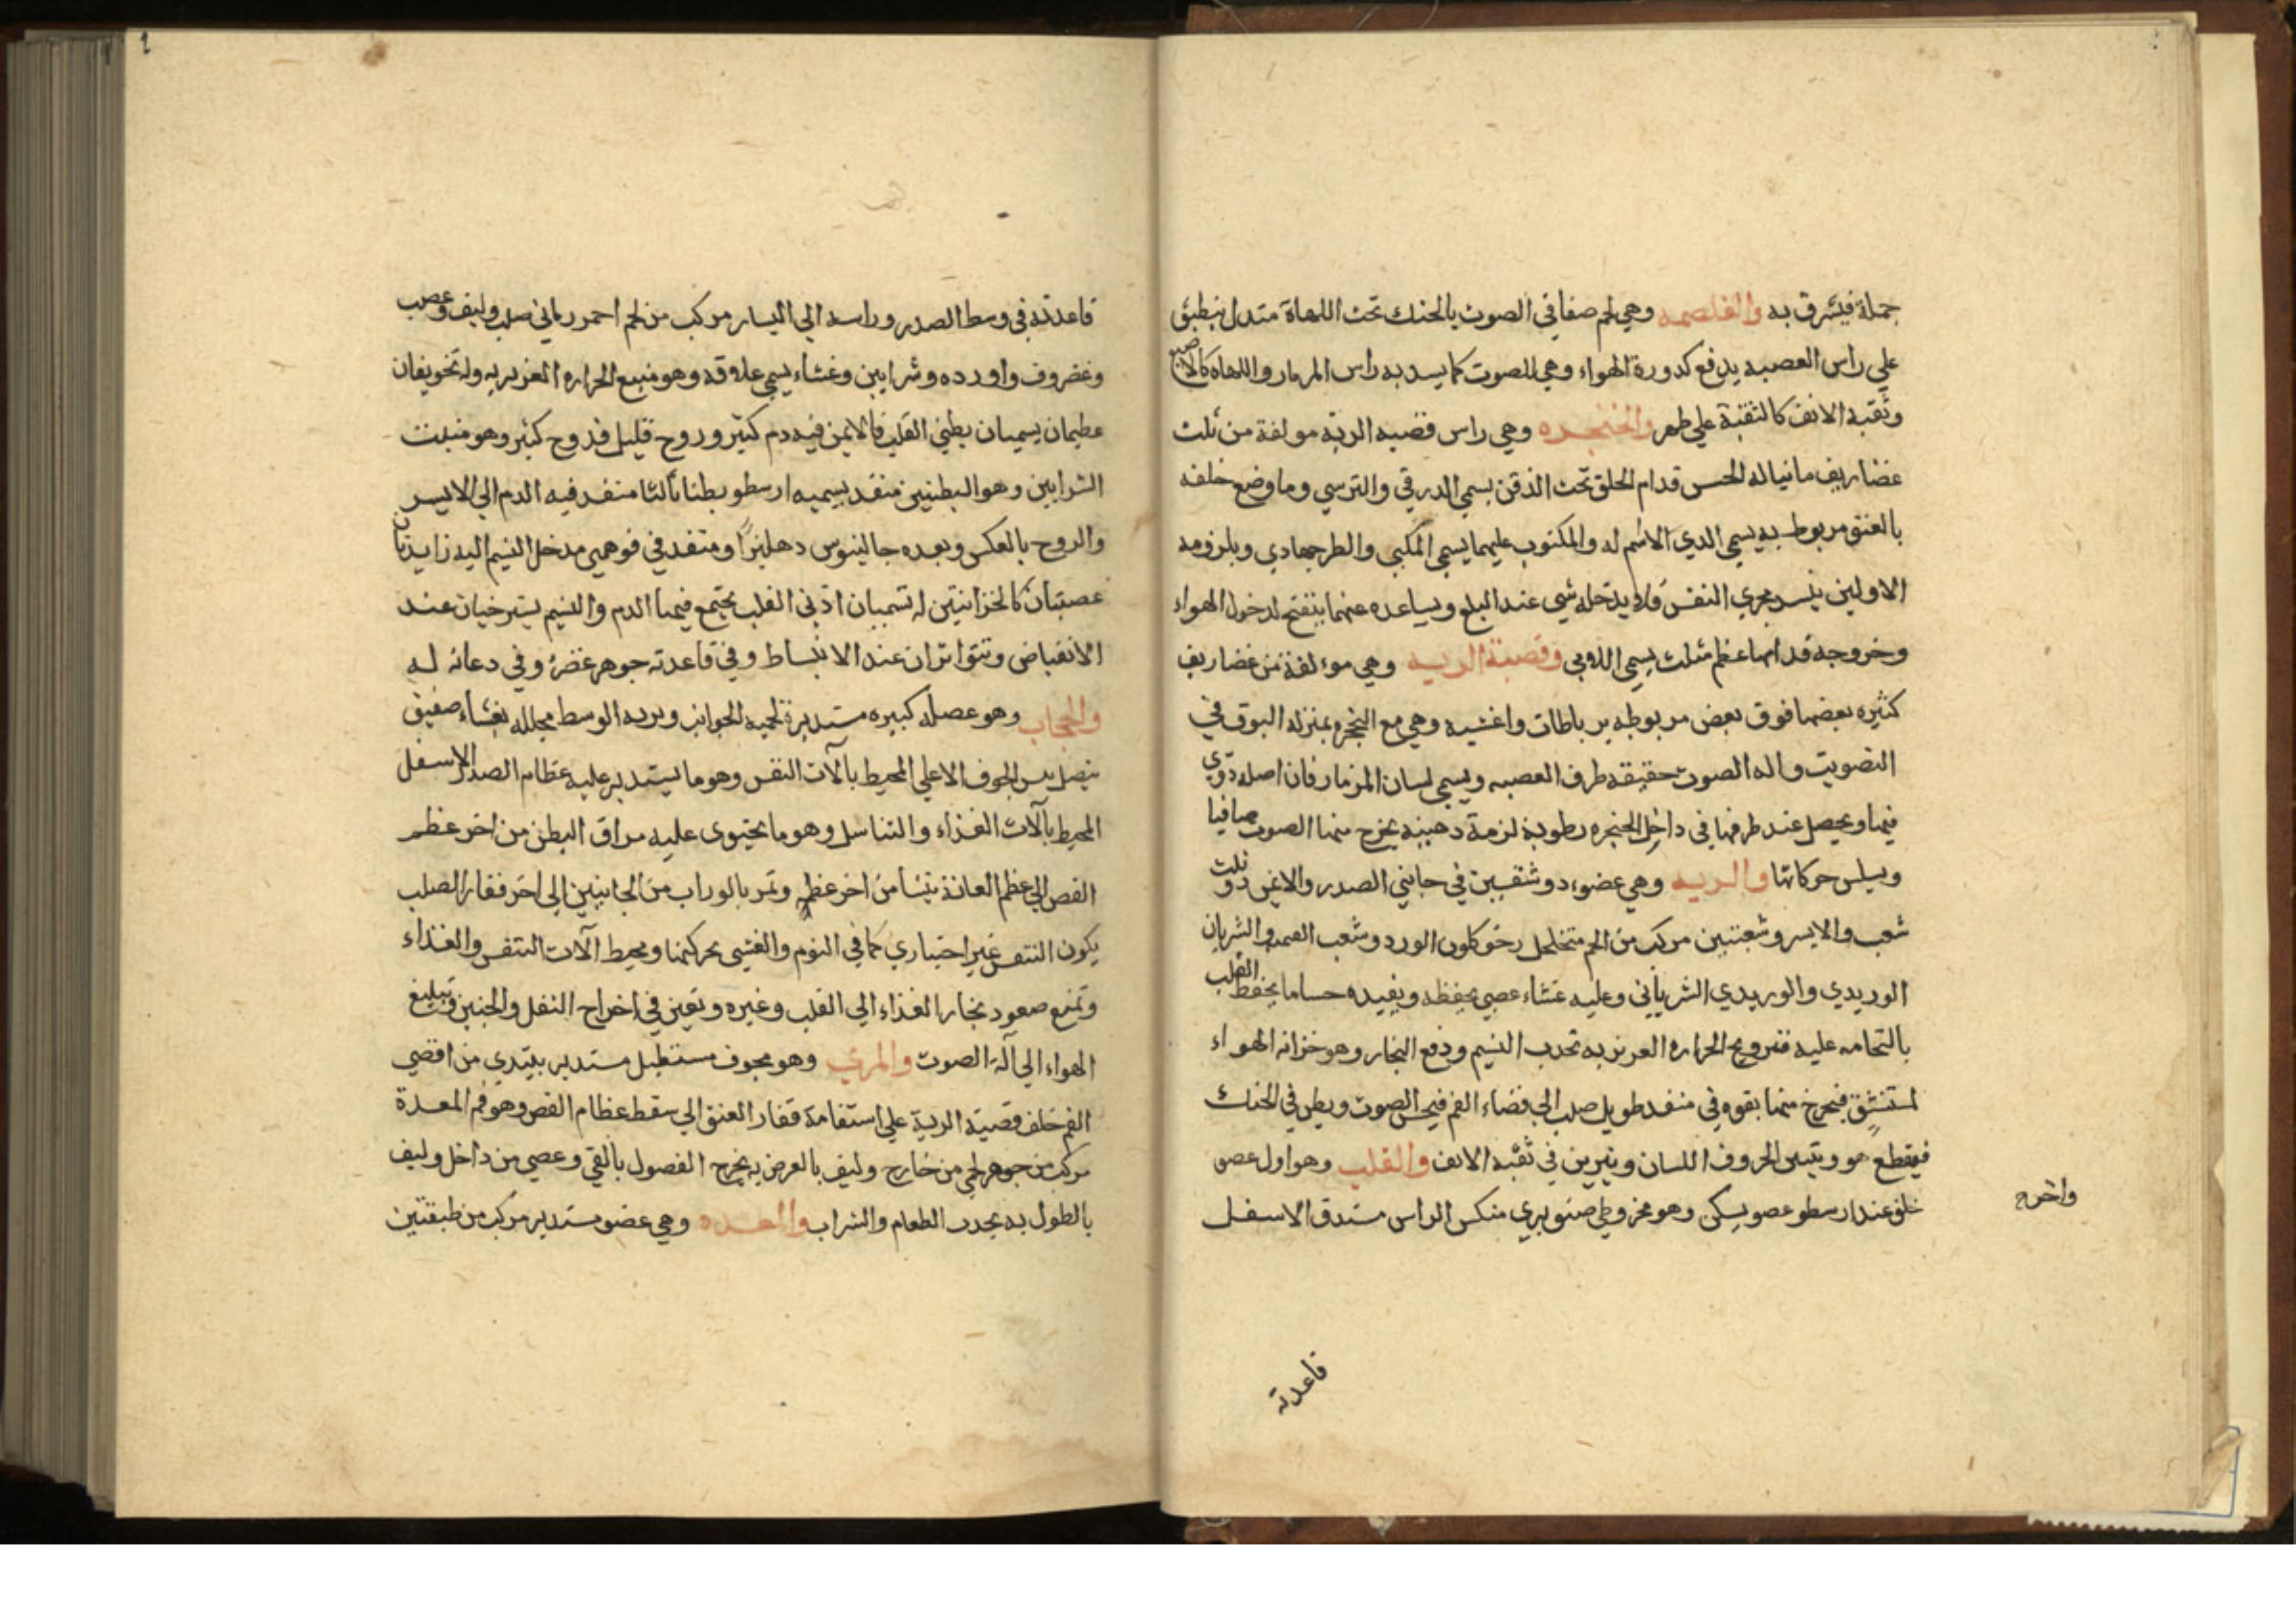 جملة فيشرق به والغلصمه وهي لحم صفاقي الصوت بالحنك تحت اللهاة متدل ينطبق
علي راس العصبه يدفع كدورة الهواء وهي للصوت كما يسد به راس المزمار واللهاه كالاصبع
وثقبة الانف كالثقبة علي ظهر والحنجره وهي راس قصبه الرية مولفة من ثلث
غضاريف مانياله الحس قدام الحلق تحت الذقن يسمي الدرقي والترسي وما وضع خلفه
بالعنق مربوط به يسمي الذي لا اسم له والمكبوب عليهما يسمي المكبي والطرجهادي وبلزومه
الاولين ينسد مجري النفس فلا يدخله شي عند البلع ويساعده عنهما ينفتح لدخول الهواء
وخروجه قدامها عظم مثلث يسمي اللامي وقصبة الريه وهي مولفة من غضاريف
كثيره بعضها فوق بعض مربوطه برباطات واغشيه وهي مع الحنجره بمنزله البوق في
التصويت واله الصوت حقيقه طرف العصبه ويسمي لسان المزمار فان اصله دوي
فيها ويحصل عند طرفها في داخل الحنجره رطوبة لزجة دهنيه يخرج منها الصوت صافيا
ويسلس حركاتها والريه وهي عضو ذو شقين في جانبي الصدر والايمن ذو ثلث
شعب والايسر وشعبتين مركب من لحم متخلخل رخو كلون الورد وشعب القصبه والشريان
الوريدي والوريدي الشرياني وعليه غشاء عصبي يحفظه ويفيده حسا ما يحفظ القلب
بالتحامه عليه فترويح الحراره الغريزيه تجذب النسيم ودفع البخار وهو خزانه الهواء
لمستنشق فيخرج منها بقوه في منفد طويل صلب الي فضاء الفم فيحس الصوت ويطن في الحنك
فيقطع هو ويتبين الحروف اللسان ويتزين في ثقبة الانف والقلب وهو اول عضو
خلق عند ارسطو عضو يسكن وهو مخروطي صنوبري منكس الراس مستدق الاسفل
واخره
قاعدته
قاعدته في وسط الصدر وراسه الي اليسار مركب من لحم احمر رماني صلب وليف وعصب
وغضروف واورده وشرايين وغشاء يسمي علاقه وهو منبع الحراره الغزيريه وله تجويفان
عظيمان يسميان بطني القلب فالايمن فيه دم كثير وروح قليل فروح كثير وهو منبت
الشرايين وهو البطنين منفد يسميه ارسطو بطنا ثالثا منفد فيه الدم الي الايسر
والروح بالعكس وبعده جالينوس دهليزا ومنفد في فوهي مدخل النسيم اليه زايدتان
عصبتان كالخزانيتين له تسميان اذني القلب يجتمع فيهما الدم والنسيم يسترخيان عند
الانقباض وتتواتران عند الانبساط وفي قاعدته جوهر غضر وفي دعانه له
والحجاب وهو عضله كبيره مستديرة لحميه الجوانب وتريه الوسط مجلله بغشاء صفيق
يفصل بين الجوف الاعلي المحيط بآلات النفس وهو ما يستدير عليه عظام الصدر الاسفل
المحيط بآلات الغذاء والتناسل وهو ما يحتوي عليه مراق البطن من اخر عظم
القص الي عظم العانة ينشا من اخر عظمه وتمر بالوراب من الجانبين الي اخر فقار الصلب
يكون التنفس غير اختياري كما في النوم والغشي يحركهما ومحيط آلات التنفس والغذاء
وتمنع صعود بخار الغذاء الي القلب وغيره وتعين في اخراج الثفل والجنين وتبليغ
الهواء الي آلة الصوت والمري وهو مجوف مستطيل مستدير يبتدي من اقصي
الفم خلف قصبة الرية علي استقامة فقار العنق الي سقط عظام القص وهو فم المعدة
مركب من جوهر لحمي من خارج وليف بالعرض به يخرج الفصول بالقي وعصبي من داخل وليف
بالطول به يجذب الطعام والشراب والمعده وهي عضو مستدير مركب من طبقتين